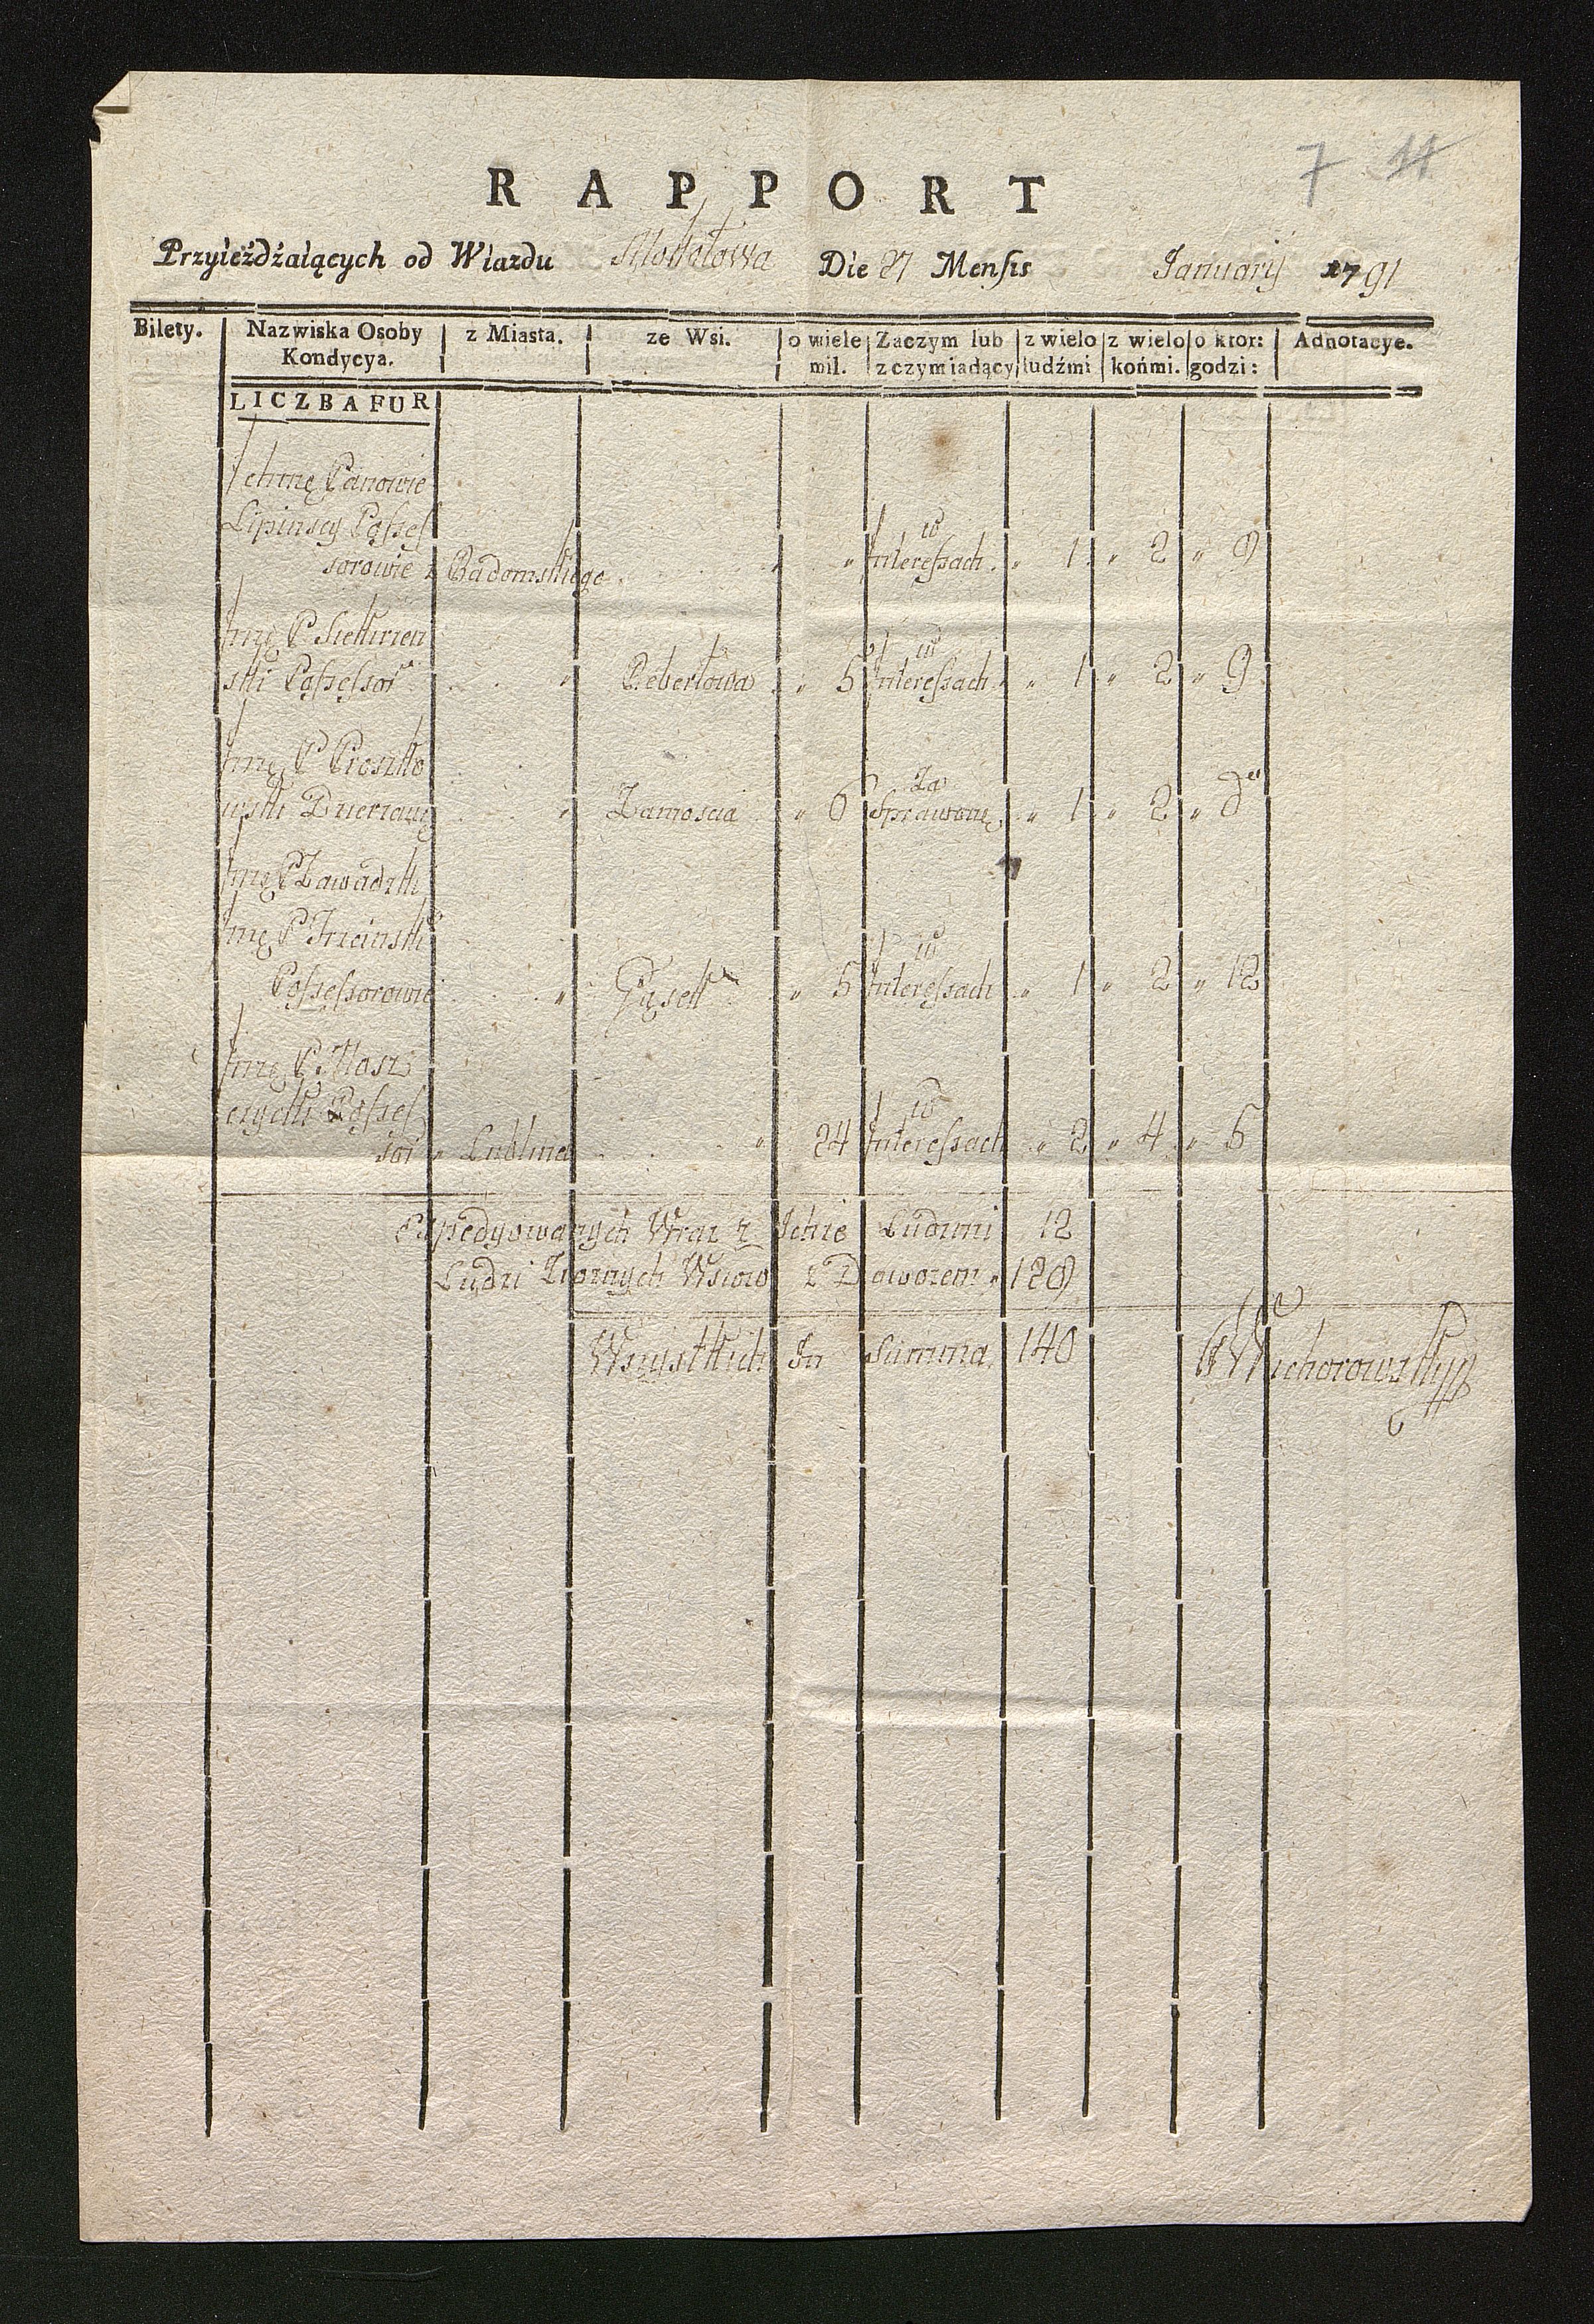 7 11
RAPPORT
Przyieżdżaiących od Wiazdu Mokotowa Die 27 Mensis Januarij 1791
Bilety. Nazwiska Osoby Kondycya. z Miasta. ze Wsi. o wiele mil. Zaczym lub z czym iadący z wielo ludźmi z wielo końmi. o ktor: godzi: Adnotacye.
LICZBA FUR
Jchmę Panowie
Lipinscy Possessorowie z Radomskiego " w Interessach " 1 " 2 " 9
Jmę P
ski Possessor " " 5 w Interessach " 1 " 2 " 9
Jmę P Proszko
wski Dzierzawę " Zamoscia " 6 Za Sprawunę " 1 " 2 " do
Jmę P Zawadzki
Jmę P Trzcinski
Possessorowie " Gąsek " 5 w Interessach " 1 " 2 " 12
Jmę P Mosz
czycki Posses
sor " Lublina " 24 w Interessach " 2 " 4 " 5
Expedyowanych Wraz z Ichże Ludzmi 12
Ludzi Luznych Wsiow z Dowozem " 128
Wszystkich In Summa 140